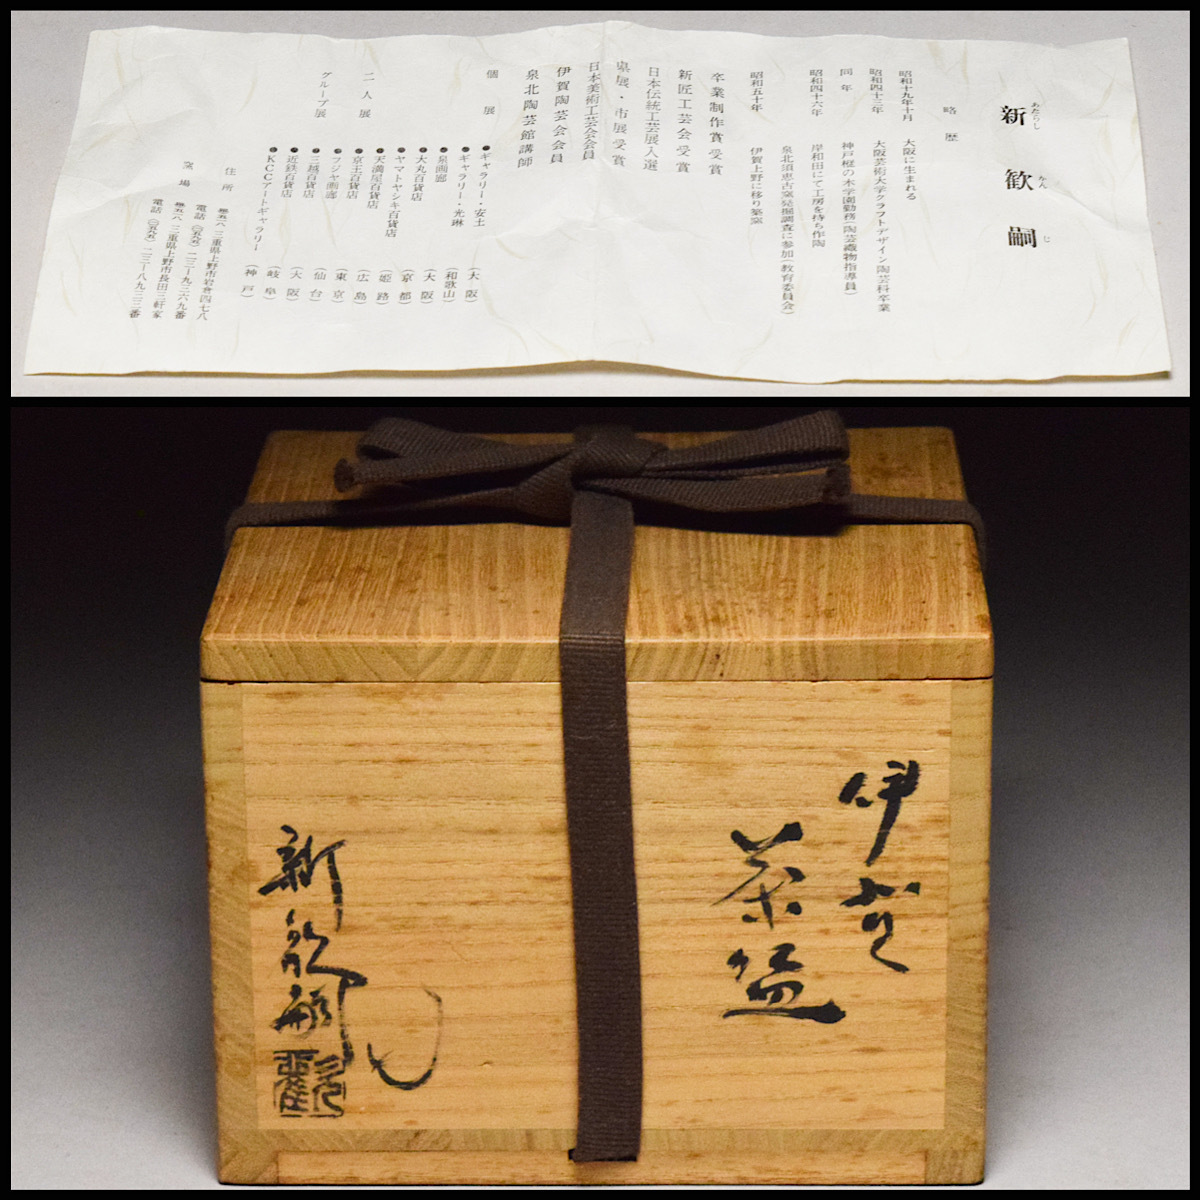 新 歓 嗣
あたらし かん じ
略 歴
昭和十九年十月 大阪に生まれる
昭和四十三年 大阪芸術大学クラフトデザイン陶芸科卒業
同 年 神戸椛の木学園勤務(陶芸織物指導員)
昭和四十六年 岸和田にて工房を持ち作陶
泉北須恵古窯発掘調査に参加(教育委員会)
昭和五十年 伊賀上野に移り築窯
卒業制作賞受賞
新匠工芸会受賞
日本伝統工芸展入選
県展・市展受賞
日本美術工芸会会員
伊賀陶芸会会員
泉北陶芸館講師
個 展 ●ギャラリー・安土 (大 阪)
●ギャラリー・光琳 (和歌山)
●泉画廊 (大 阪)
●大丸百貨店 (京 都)
●ヤマトヤシキ百貨店 (姫 路)
二人展 ●天満屋百貨店 (広 島)
●京王百貨店 (東 京)
●フジヤ画廊 (仙 台)
グループ展 ●三越百貨店 (大 阪)
●近鉄百貨店 (岐 阜)
●KCCアートギャラリー (神 戸)
住 所 三重県上野市岩倉四七八
電話(〇五九五)二三-九三六九番
窯 場 三重県上野市長田三軒家
電話(〇五九五)二三-八九三三番
伊賀
茶盌
新歓嗣